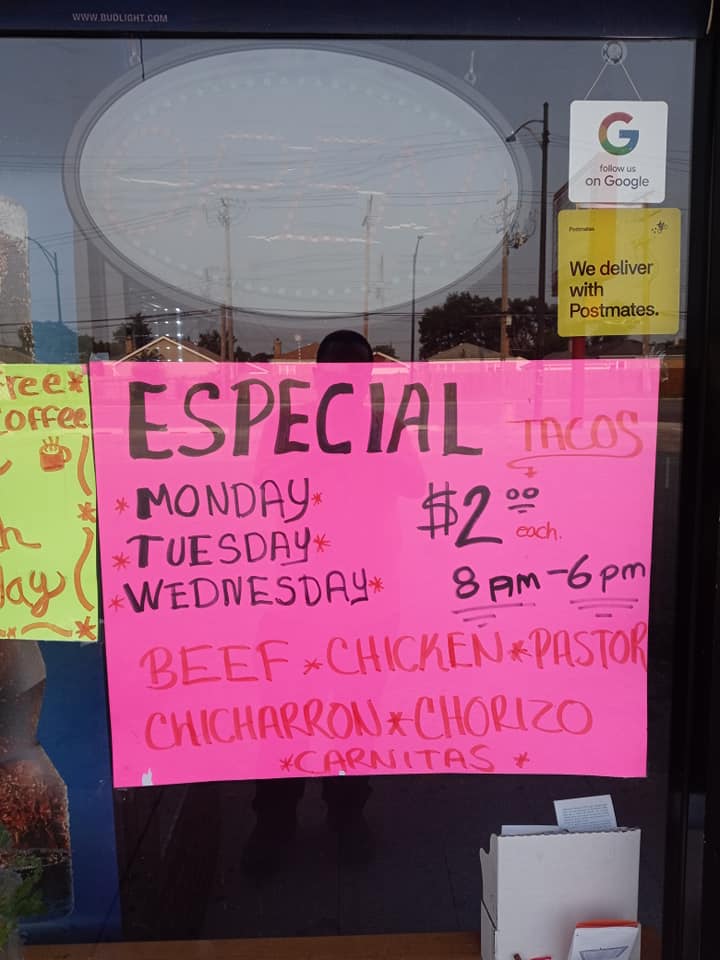 WWW.BUDLIGHT.COM
G
follow us
on Google
Postmates
We deliver
with
Postmates.
ree*
offee
ay
ESPECIAL TACOS
*MONDAY* $2.00 each.
*TUESDAY*
*WEDNESDAY* 8 AM - 6 pm
BEEF * CHICKEN * PASTOR
CHICHARRON * CHORIZO
*CARNITAS *